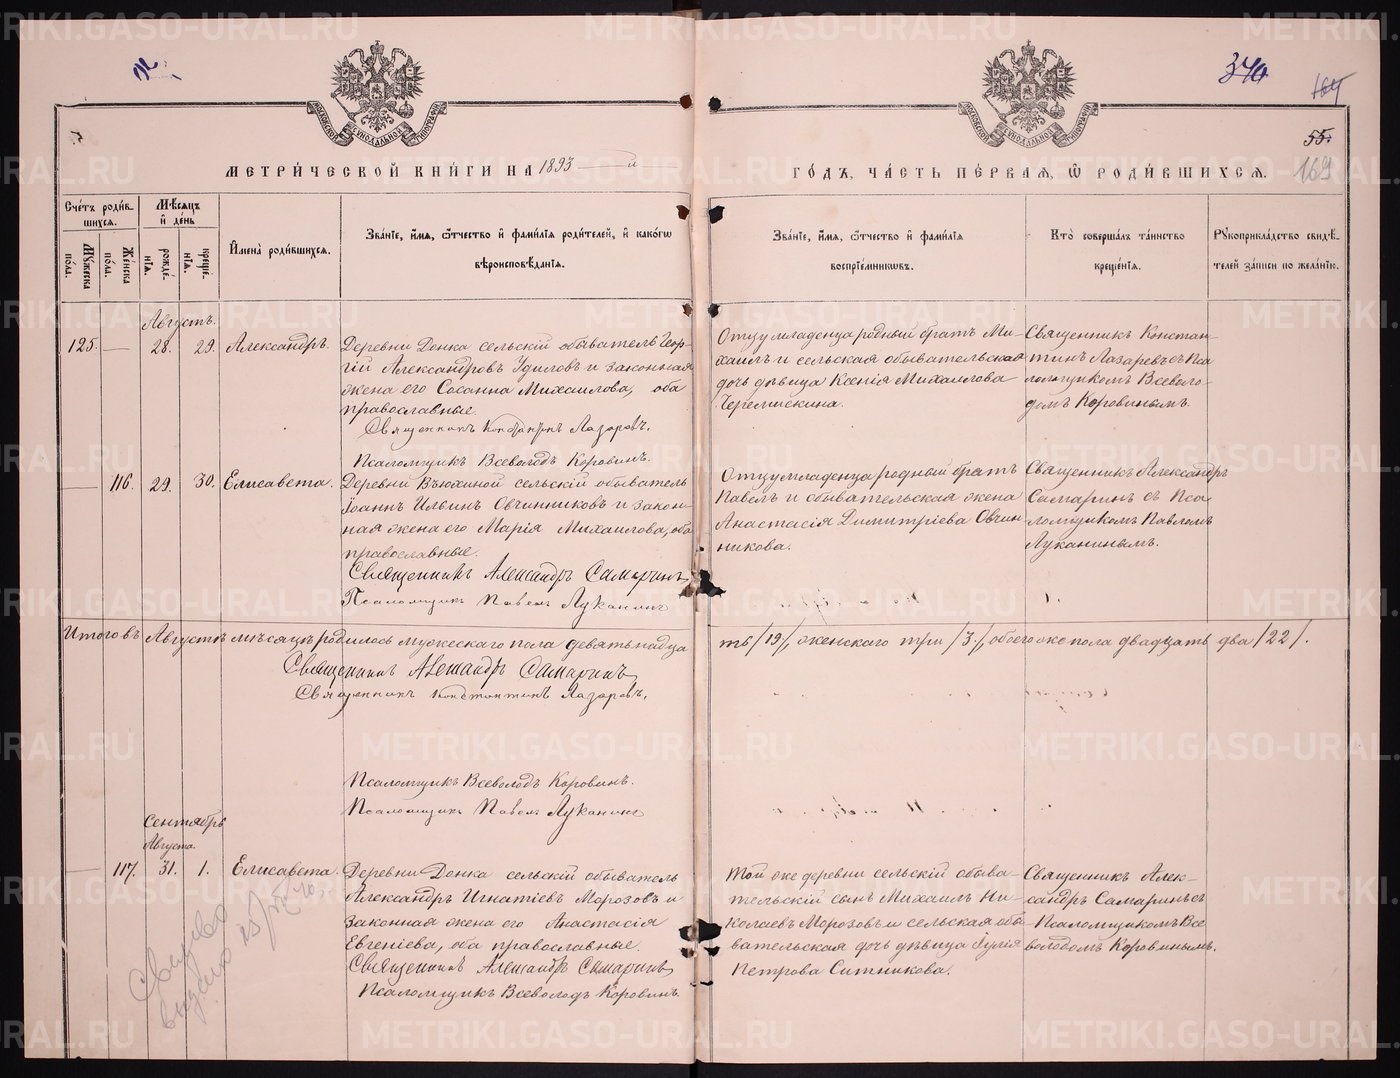 340
164
55.
169
МЕТРИ́ЧЕСКОЙ КНИ́ГИ НА 1893 й
ГО́ДЪ, ЧА́СТЬ ПЕ́РВАЯ, Ѡ РОДИ́ВШИХСѦ.
Сче́тъ роди́в-
шихся.
Мѣ́сяцъ
и҆ де́нь
Мꙋ́жеска
по́ла.
Же́нска
по́ла.
рожде́-
нїѧ.
креще́-
нїѧ.
И҆мена̀ роди́вшихся.
Зва́нїе, и҆́мѧ, ѻ҆́тчество и҆ фами́лїѧ роди́телей, и҆ како́гѡ
вѣроисповѣ́данїѧ.
Зва́нїе, и҆́мѧ, ѻ҆́тчество и҆ фами́лїѧ
воспрїе́мникѡвъ.
Кто̀ соверша́лъ та́инство
креще́нїѧ.
Рꙋкоприкла́дство свидѣ́-
телей за́писи по жела́нїю.
Августъ.
125. — 28. 29. Александръ.
Деревни Донка сельскій обыватель Геор-
гій Александровъ Удиловъ и законная
жена его Сосанна Михаилова, оба
православные.
Священникъ Константинъ Лазаревъ.
Псаломщикъ Всеволодъ Коровинъ.
Отцу младенца родный братъ Ми-
хаилъ и сельская обывательская
дочь дѣвица Ксенія Михаилова
Черемискина.
Священникъ Констан-
тинъ Лазаревъ съ Пса
ломщикомъ Всеволо-
домъ Коровинымъ.
— 116. 29. 30. Елисавета.
Деревни Вьюхиной сельскій обыватель
Іоаннъ Ильинъ Овчинниковъ и закон-
ная жена его Марія Михаилова, оба
православные.
Священникъ Александръ Самаринъ
Псаломщикъ Павелъ Луканинъ
Отцу младенца родный братъ
Павелъ и обывательская жена
Анастасія Димитріева Овчин
никова.
Священникъ Александръ
Самаринъ съ Пса
ломщикомъ Павломъ
Луканинымъ.
Итого въ Августѣ мѣсяцѣ родилось мужескаго пола девятьнадца
ть /19/, женскаго три /3./, обоего же пола двадцать два /22/.
Священникъ Александръ Самаринъ
Священникъ Константинъ Лазаревъ.
Псаломщикъ Всеволодъ Коровинъ.
Псаломщикъ Павелъ Луканинъ
Сентябрь
Августа.
— 117. 31. 1. Елисавета.
Деревни Донка сельскій обыватель
Александръ Игнатіевъ Морозовъ и
законная жена его Анастасія
Евгеніева, оба православные.
Священникъ Александръ Самаринъ
Псаломщикъ Всеволодъ Коровинъ.
Той же деревни сельскій обыва-
тельскій сынъ Михаилъ Ни-
колаевъ Морозовъ и сельская обы
вательская дочь дѣвица Іулія
Петрова Ситникова.
Священникъ Алек-
сандръ Самаринъ съ
Псаломщикомъ Все
володомъ Коровинымъ.
METRIKI.GASO-URAL.RU